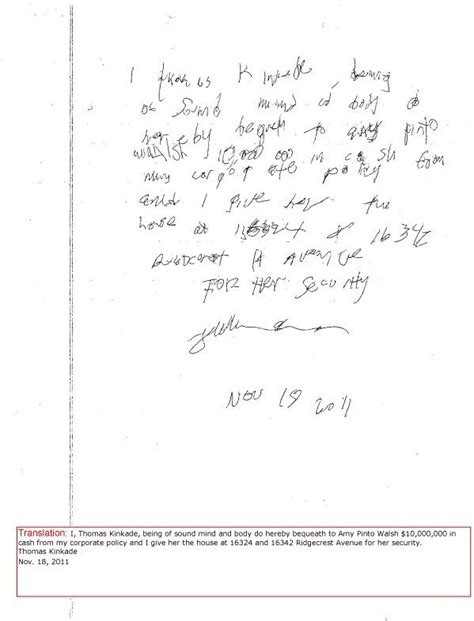 I being
of sound mind body do
hereby to pinto
10,000 000 in cash from
my policy
and I give her the
house at & 16342
Avenue
FOR Her Security
Nov 2011
Translation: I, Thomas Kinkade, being of sound mind and body do hereby bequeath to Amy Pinto Walsh $10,000,000 in
cash from my corporate policy and I give her the house at 16324 and 16342 Ridgecrest Avenue for her security.
Thomas Kinkade
Nov. 18, 2011